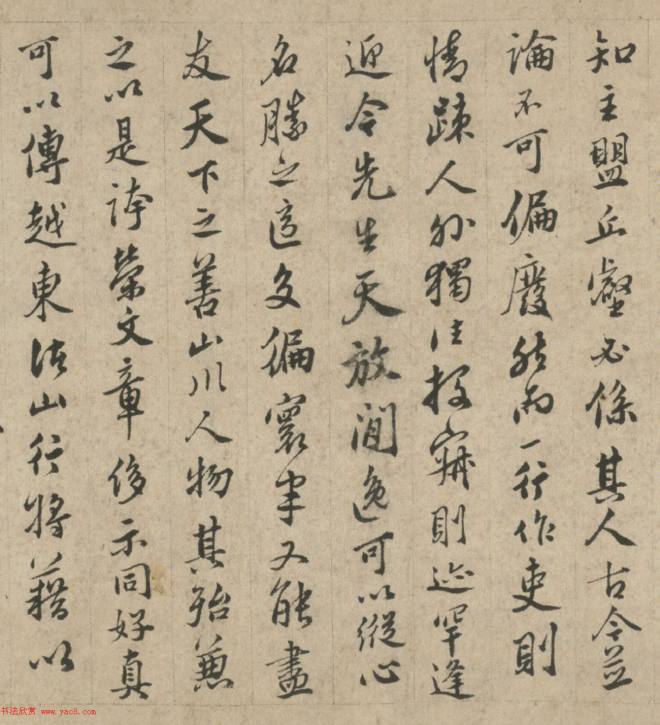 知主盟丘壑必係其人古今并
論不可偏廢然而一行作吏則
情疎人外獨往投窾則迹罕逢
迎今先生天放閒逸可以縱心
名勝之区多偏寰宇又能盡
友天下之善山川人物其殆兼
之以是誇榮文章侈示同好真
可以傳越東法山行將藉以
书法欣赏 www.yac8.com